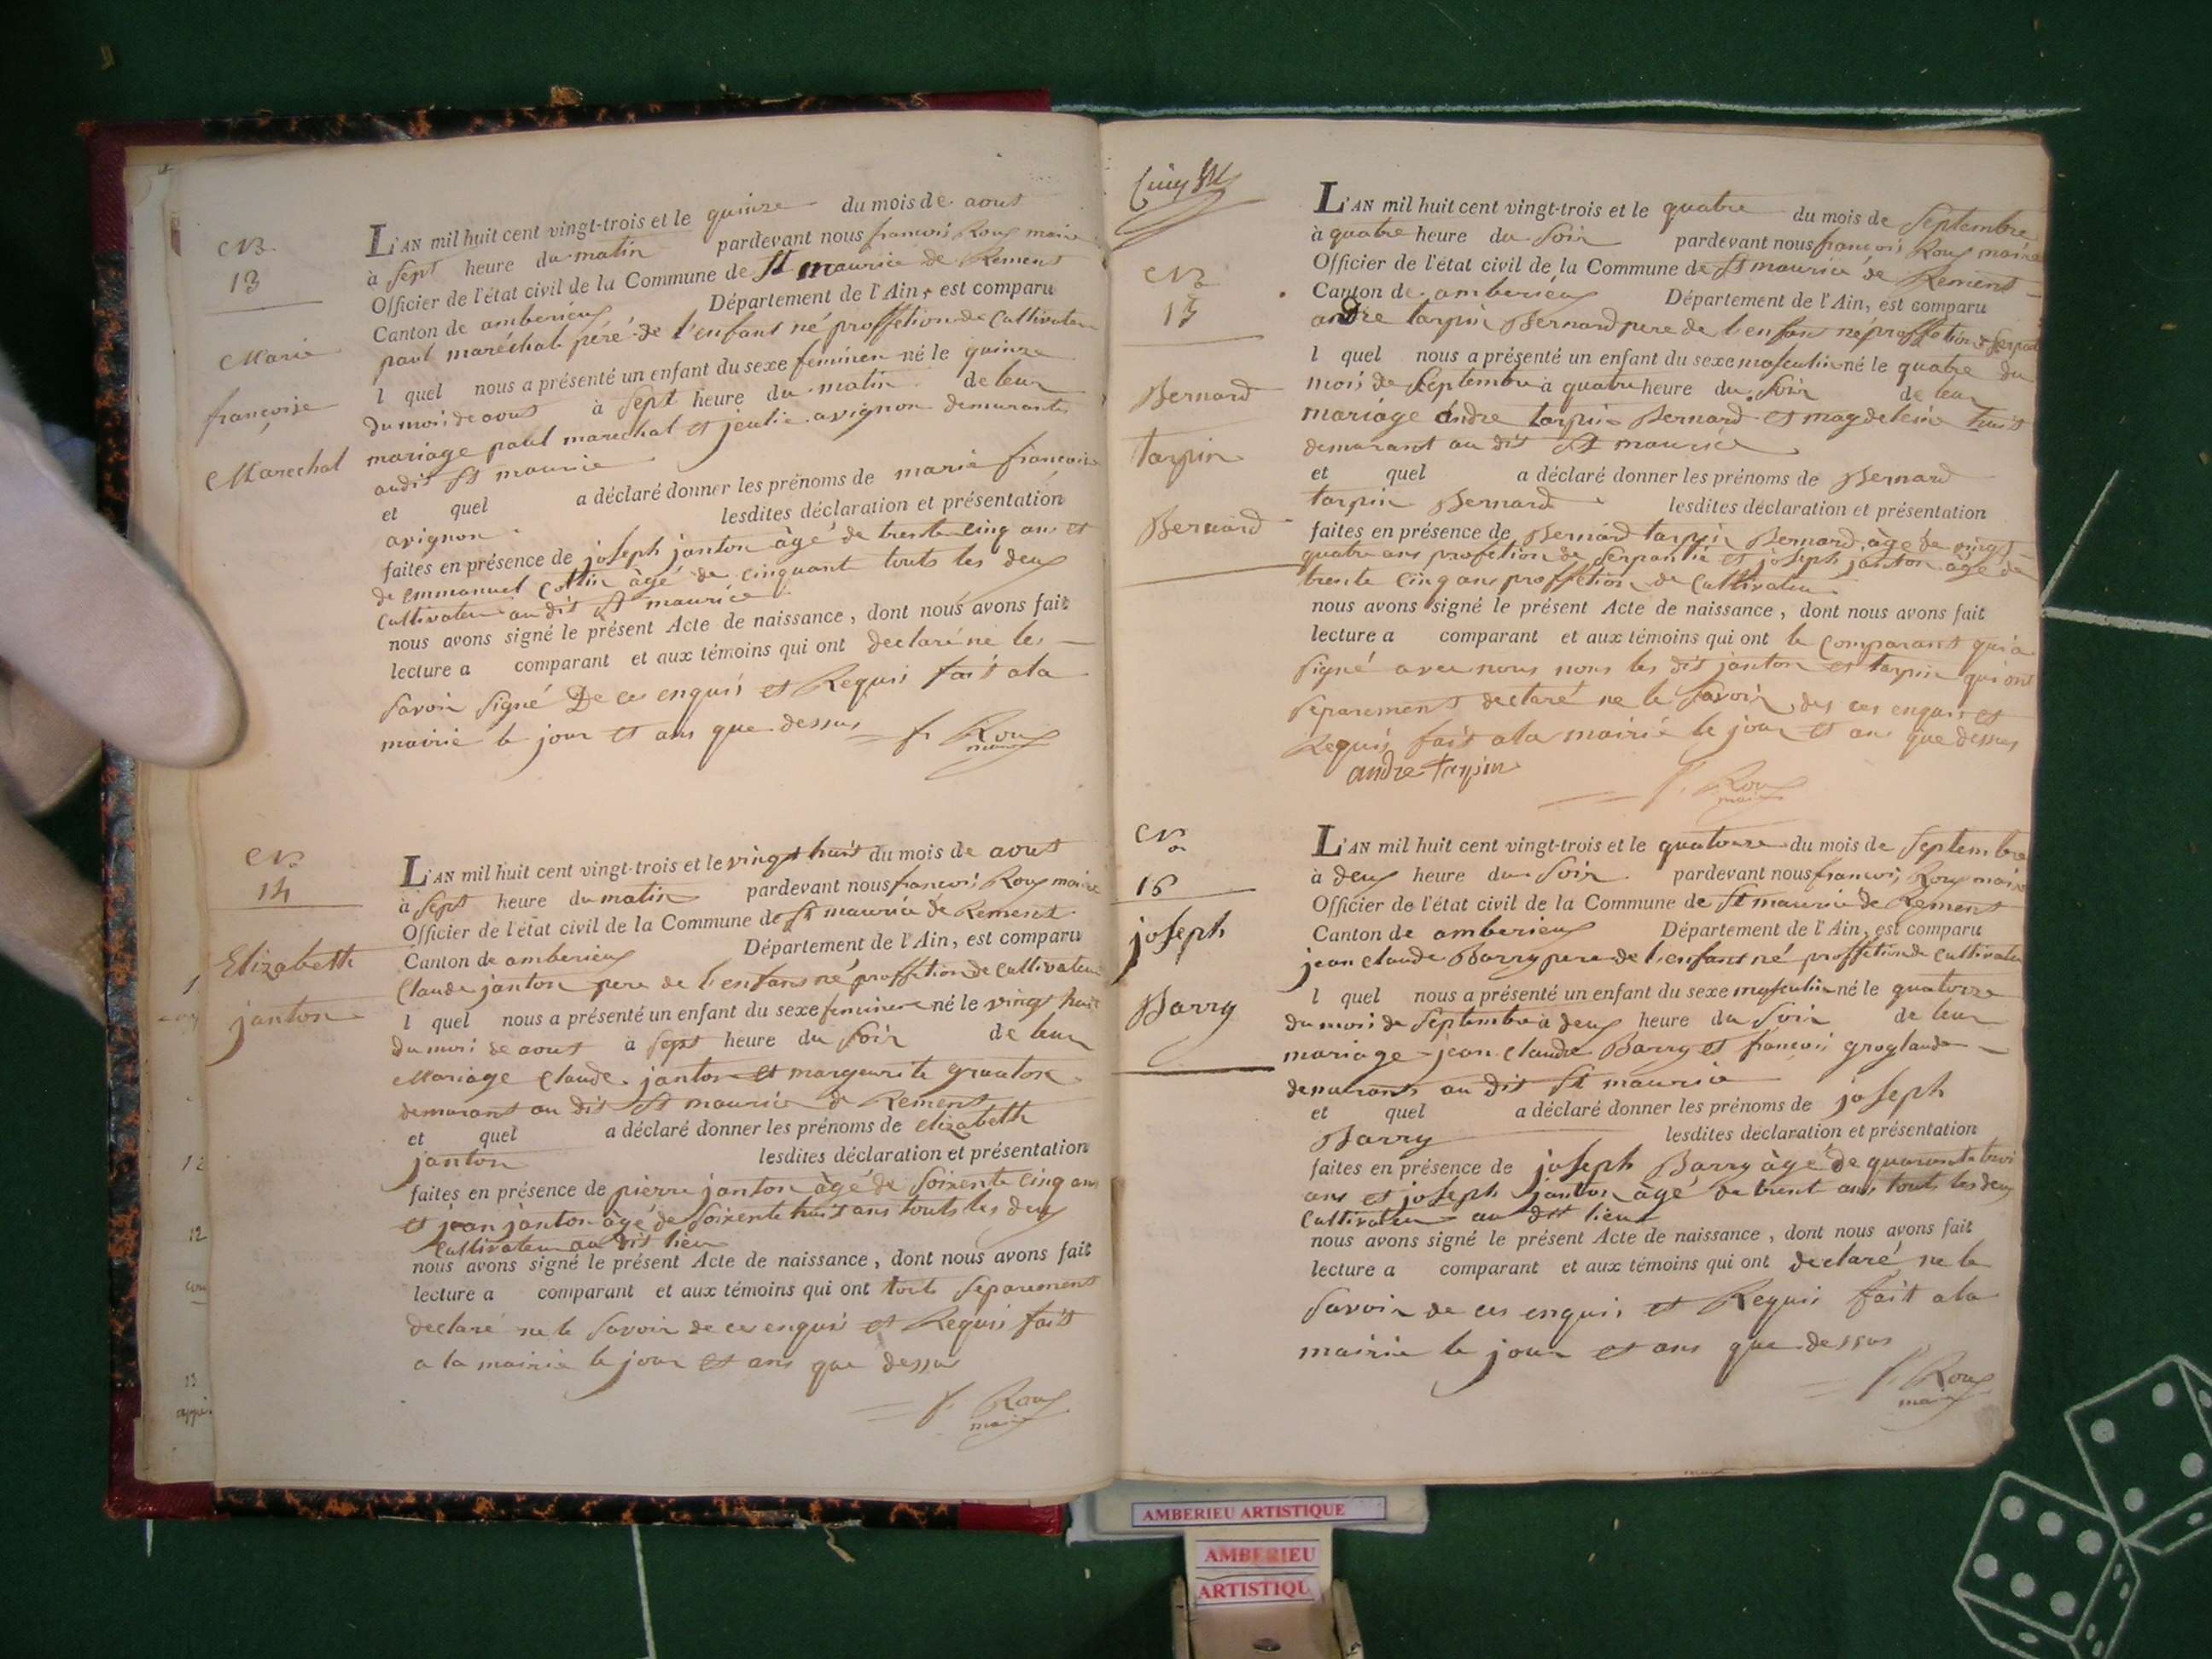 N°
13
Marie
françoise
Marechal
L'AN mil huit cent vingt-trois et le quinze du mois de aout
à sept heure du matin pardevant nous françois Roux maire
Officier de l'état civil de la Commune de St maurice de Rement
Canton de amberieux Département de l'Ain, est comparu
paul maréchal péré de l'enfant né proffetion de Cultivateur
l quel nous a présenté un enfant du sexe feminen né le quinze
du mois de aout à sept heure du matin de leur
mariage paul marechal et avignon demurants
audit St maurice
et quel a déclaré donner les prénoms de marie françoise
avignon lesdites déclaration et présentation
faites en présence de joseph janton âgé de trente cinq ans et
de emmanuel Cottin âgé de cinquant touts les deux
Cultivateur au dit St maurice
nous avons signé le présent Acte de naissance, dont nous avons fait
lecture a comparant et aux témoins qui ont declaré ne le
savoir signé De ces enquis et Requis fait a la
mairie le jour et ans que dessus f Roux
maire
N°
14
Elizabeth
janton
L'AN mil huit cent vingt-trois et le vingt huit du mois de aout
à sept heure du matin pardevant nous françois Roux maire
Officier de l'état civil de la Commune de St maurice de Rement
Canton de amberieux Département de l'Ain, est comparu
Claude janton pere de l'enfant né proffetion de Cultivateur
l quel nous a présenté un enfant du sexe feminine né le vingt huit
du mois de aout à sept heure du soir de leur
Mariage Claude janton et margeurite
demurant au dit St maurice de Rement
et quel a déclaré donner les prénoms de elizabeth
janton lesdites déclaration et présentation
faites en présence de pierre janton âgé de soixente cinq ans
et jean janton âgé de soixente huit ans touts les deux
Cultivateur au dit lieu
nous avons signé le présent Acte de naissance, dont nous avons fait
lecture a comparant et aux témoins qui ont touts separement
declaré ne le savoir de ces enquis et Requis fait
a la mairie le jour et ans que dessus
f. Roux
maire
12
12
13
N°
15
Bernard
Tarpin
Bernard
L'AN mil huit cent vingt-trois et le quatre du mois de Septembre
à quatre heure du soir pardevant nous françois Roux maire
Officier de l'état civil de la Commune de St maurice de Rement
Canton de amberieux Département de l'Ain, est comparu
andre tarpin Bernard pere de l'enfant né proffetion de
l quel nous a présenté un enfant du sexe masculin né le quatre du
mois de Septembre à quatre heure du soir de leur
mariage andre tarpin Bernard et magdeleine
demurant au dit St maurice
et quel a déclaré donner les prénoms de Bernard
tarpin Bernard lesdites déclaration et présentation
faites en présence de Bernard tarpin Bernard âgé de vingt
quatre ans profetion de et joseph janton âgé de
trente cinq ans proffetion de Cultivateur
nous avons signé le présent Acte de naissance, dont nous avons fait
lecture a comparant et aux témoins qui ont le comparant qui a
signé avec nous nons les dit janton et tarpin qui ont
séparement declaré ne le savoir des ces enquis et
Requis fait a la mairie le jour et ans que dessus
andre tarpin
f. Roux
maire
N°
16
joseph
Barry
L'AN mil huit cent vingt-trois et le quatorze du mois de Septembre
à deux heure du soir pardevant nous françois Roux maire
Officier de l'état civil de la Commune de St maurice de Rement
Canton de amberieux Département de l'Ain, est comparu
jean claude Barry pere de l'enfant né proffetion de Cultivateur
l quel nous a présenté un enfant du sexe masculin né le quatorze
du mois de Septembre à deux heure du soir de leur
mariage jean claude Barry et françois groglande
demurants au dit St maurice
et quel a déclaré donner les prénoms de joseph
Barry lesdites déclaration et présentation
faites en présence de joseph Barry âgé de quarante troi
ans et joseph janton âgé de trent ans touts les deux
Cultivateur au dit lieux
nous avons signé le présent Acte de naissance, dont nous avons fait
lecture a comparant et aux témoins qui ont declaré ne le
savoir de ces enquis et Requis fait a la
mairie le jour et ans que dessus
f. Roux
maire
AMBERIEU ARTISTIQUE
AMBERIEU
ARTISTIQU